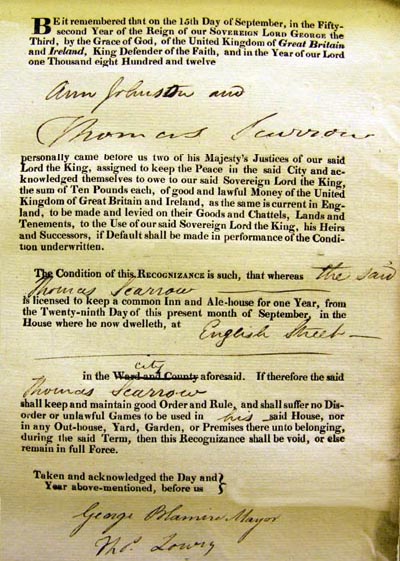 BE it remembered that on the 15th Day of September, in the Fifty-
second Year of the Reign of our SOVEREIGN LORD GEORGE the
Third, by the Grace of God, of the United Kingdom of Great Britain
and Ireland, King Defender of the Faith, and in the Year of our Lord
One Thousand eight Hundred and twelve
Ann Johnston and
Thomas Scarrow
personally came before us two of his Majesty's Justices of our said
Lord the King, assigned to keep the Peace in the said City and ac-
knowledged themselves to owe to our said Sovereign Lord the King,
the sum of Ten Pounds each, of good and lawful Money of the United
Kingdom of Great Britain and Ireland, as the same is current in Eng-
land, to be made and levied on their Goods and Chattels, Lands and
Tenements, to the Use of our said Sovereign Lord the King, his Heirs
and Successors, if Default shall be made in performance of the Condi-
tion underwritten.
The Condition of this RECOGNIZANCE is such, that whereas the said
Thomas Scarrow
is licensed to keep a common Inn and Ale-house for one Year, from
the Twenty-ninth Day of this present month of September, in the
House where he now dwelleth, at English Street
city
in the Ward and County aforesaid. If therefore the said
Thomas Scarrow
shall keep and maintain good Order and Rule, and shall suffer no Dis-
order or unlawful Games to be used in his said House, nor
in any Out-house, Yard, Garden, or Premises there unto belonging,
during the said Term, then this Recognizance shall be void, or else
remain in full Force.
Taken and acknowledged the Day and
Year above-mentioned, before us
George Blamire Mayor
Thos. Lowry